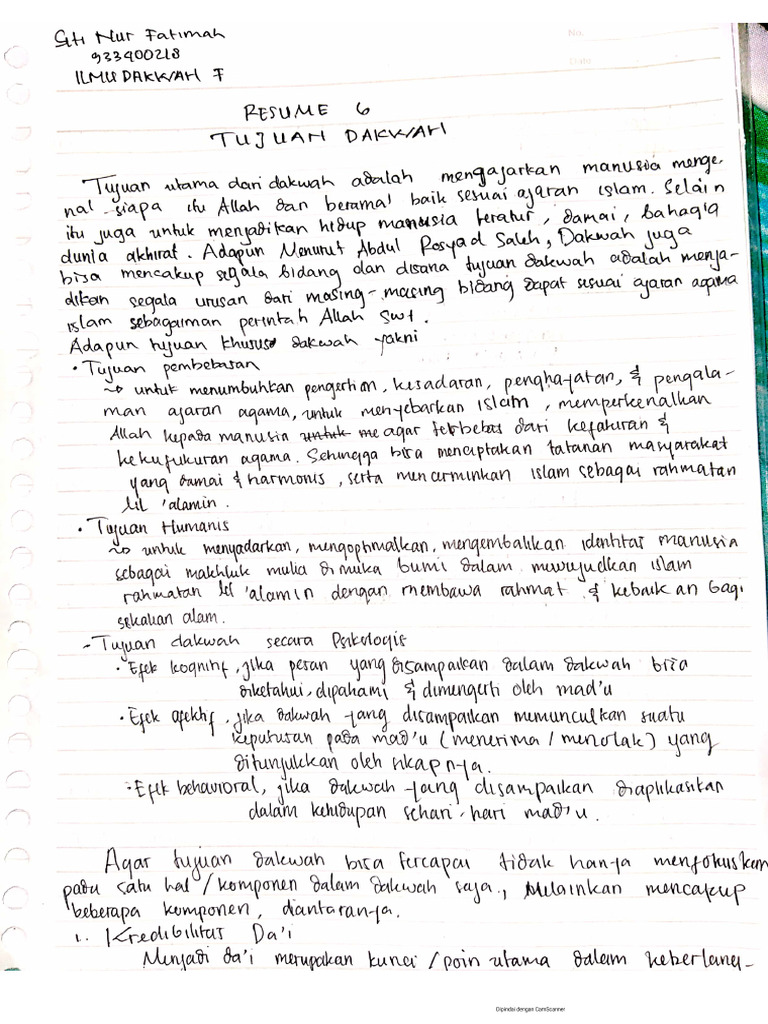 Siti Nur Fatimah
933400218
ILMU DAKWAH F
No.
Date
RESUME 6
TUJUAN DAKWAH
Tujuan utama dari dakwah adalah mengajarkan manusia menge-
nal siapa itu Allah dan beramal baik sesuai ajaran islam. Selain
itu juga untuk menjadikan hidup manusia teratur, damai, bahagia
dunia akhirat. Adapun Menurut Abdul Rosyad Saleh, Dakwah juga
bisa mencakup segala bidang dan disana tujuan dakwah adalah menja-
dikan segala urusan dari masing-masing bidang dapat sesuai ajaran agama
islam sebagaiman perintah Allah Swt.
Adapun tujuan khusus dakwah yakni
• Tujuan pembebasan
~> untuk menumbuhkan pengertian, kesadaran, penghayatan, & pengala-
man ajaran agama, untuk menyebarkan islam, memperkenalkan
Allah kepada manusia untuk me agar terbebas dari kefakuran &
kekufukuran agama. Sehingga bisa menciptakan tatanan masyarakat
yang damai & harmonis, serta mencerminkan islam sebagai rahmatan
lil 'alamin.
• Tujuan Humanis
~> untuk menyadarkan, mengoptimalkan, mengembalikan identitas manusia
sebagai makhluk mulia di muka bumi dalam mewujudkan islam
rahmatan lil 'alamin dengan membawa rahmat & kebaikan bagi
sekalian alam.
- Tujuan dakwah secara Psikologis
• Efek kognitif, jika pesan yang disampaikan dalam dakwah bisa
diketahui, dipahami & dimengerti oleh mad'u
• Efek afektif, jika dakwah yang disampaikan memunculkan suatu
keputusan pada mad'u (menerima / menolak) yang
ditunjukkan oleh sikapnya.
• Efek behavioral, jika dakwah yang disampaikan diaplikasikan
dalam kehidupan sehari-hari mad'u.
Agar tujuan dakwah bisa tercapai tidak hanya memfokuskan
pada satu hal / komponen dalam dakwah saja, Melainkan mencakup
beberapa komponen, diantaranya.
1. Kredibilitas Da'i
Menjadi da'i merupakan kunci / poin utama dalam keberlang-
Dipindai dengan CamScanner